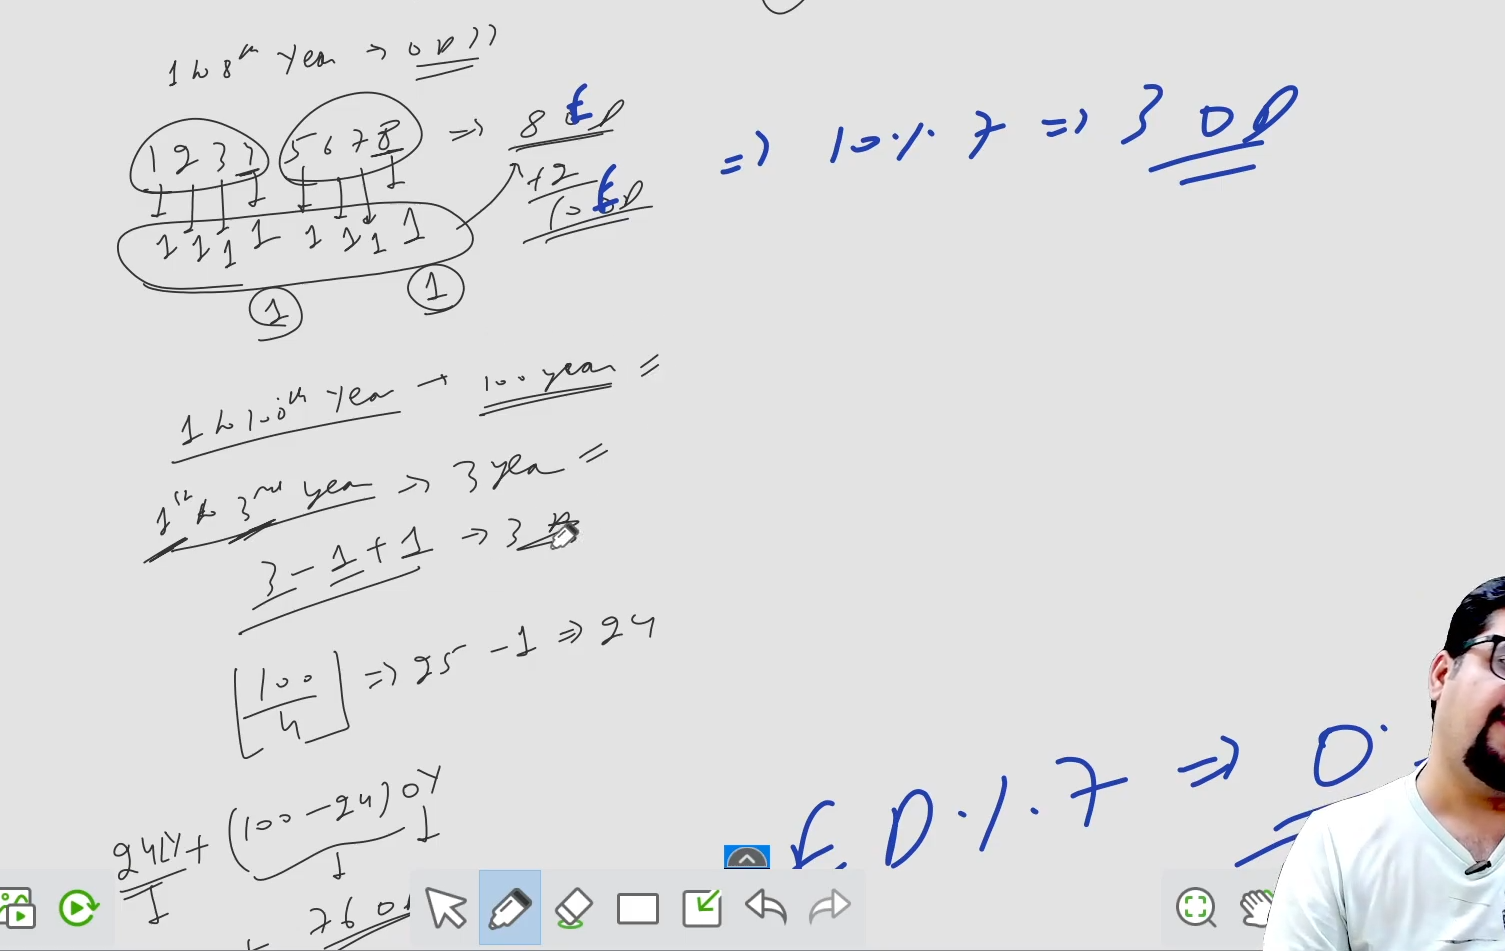 1 to 8th Year → OD ??
1 2 3 4 5 6 7 8 ⇒ 8 ED
1 1 1 1 1 1 1 1
+2
10 ED
1 1
⇒ 10 % 7 ⇒ 3 OD
1 to 100th Year → 100 year =
1st to 3rd year ⇒ 3 year =
3 - 1 + 1 → 3
[100/4] ⇒ 25 - 1 ⇒ 24
24 LY + (100 - 24) OY
76 O
E.D % 7 ⇒ O.